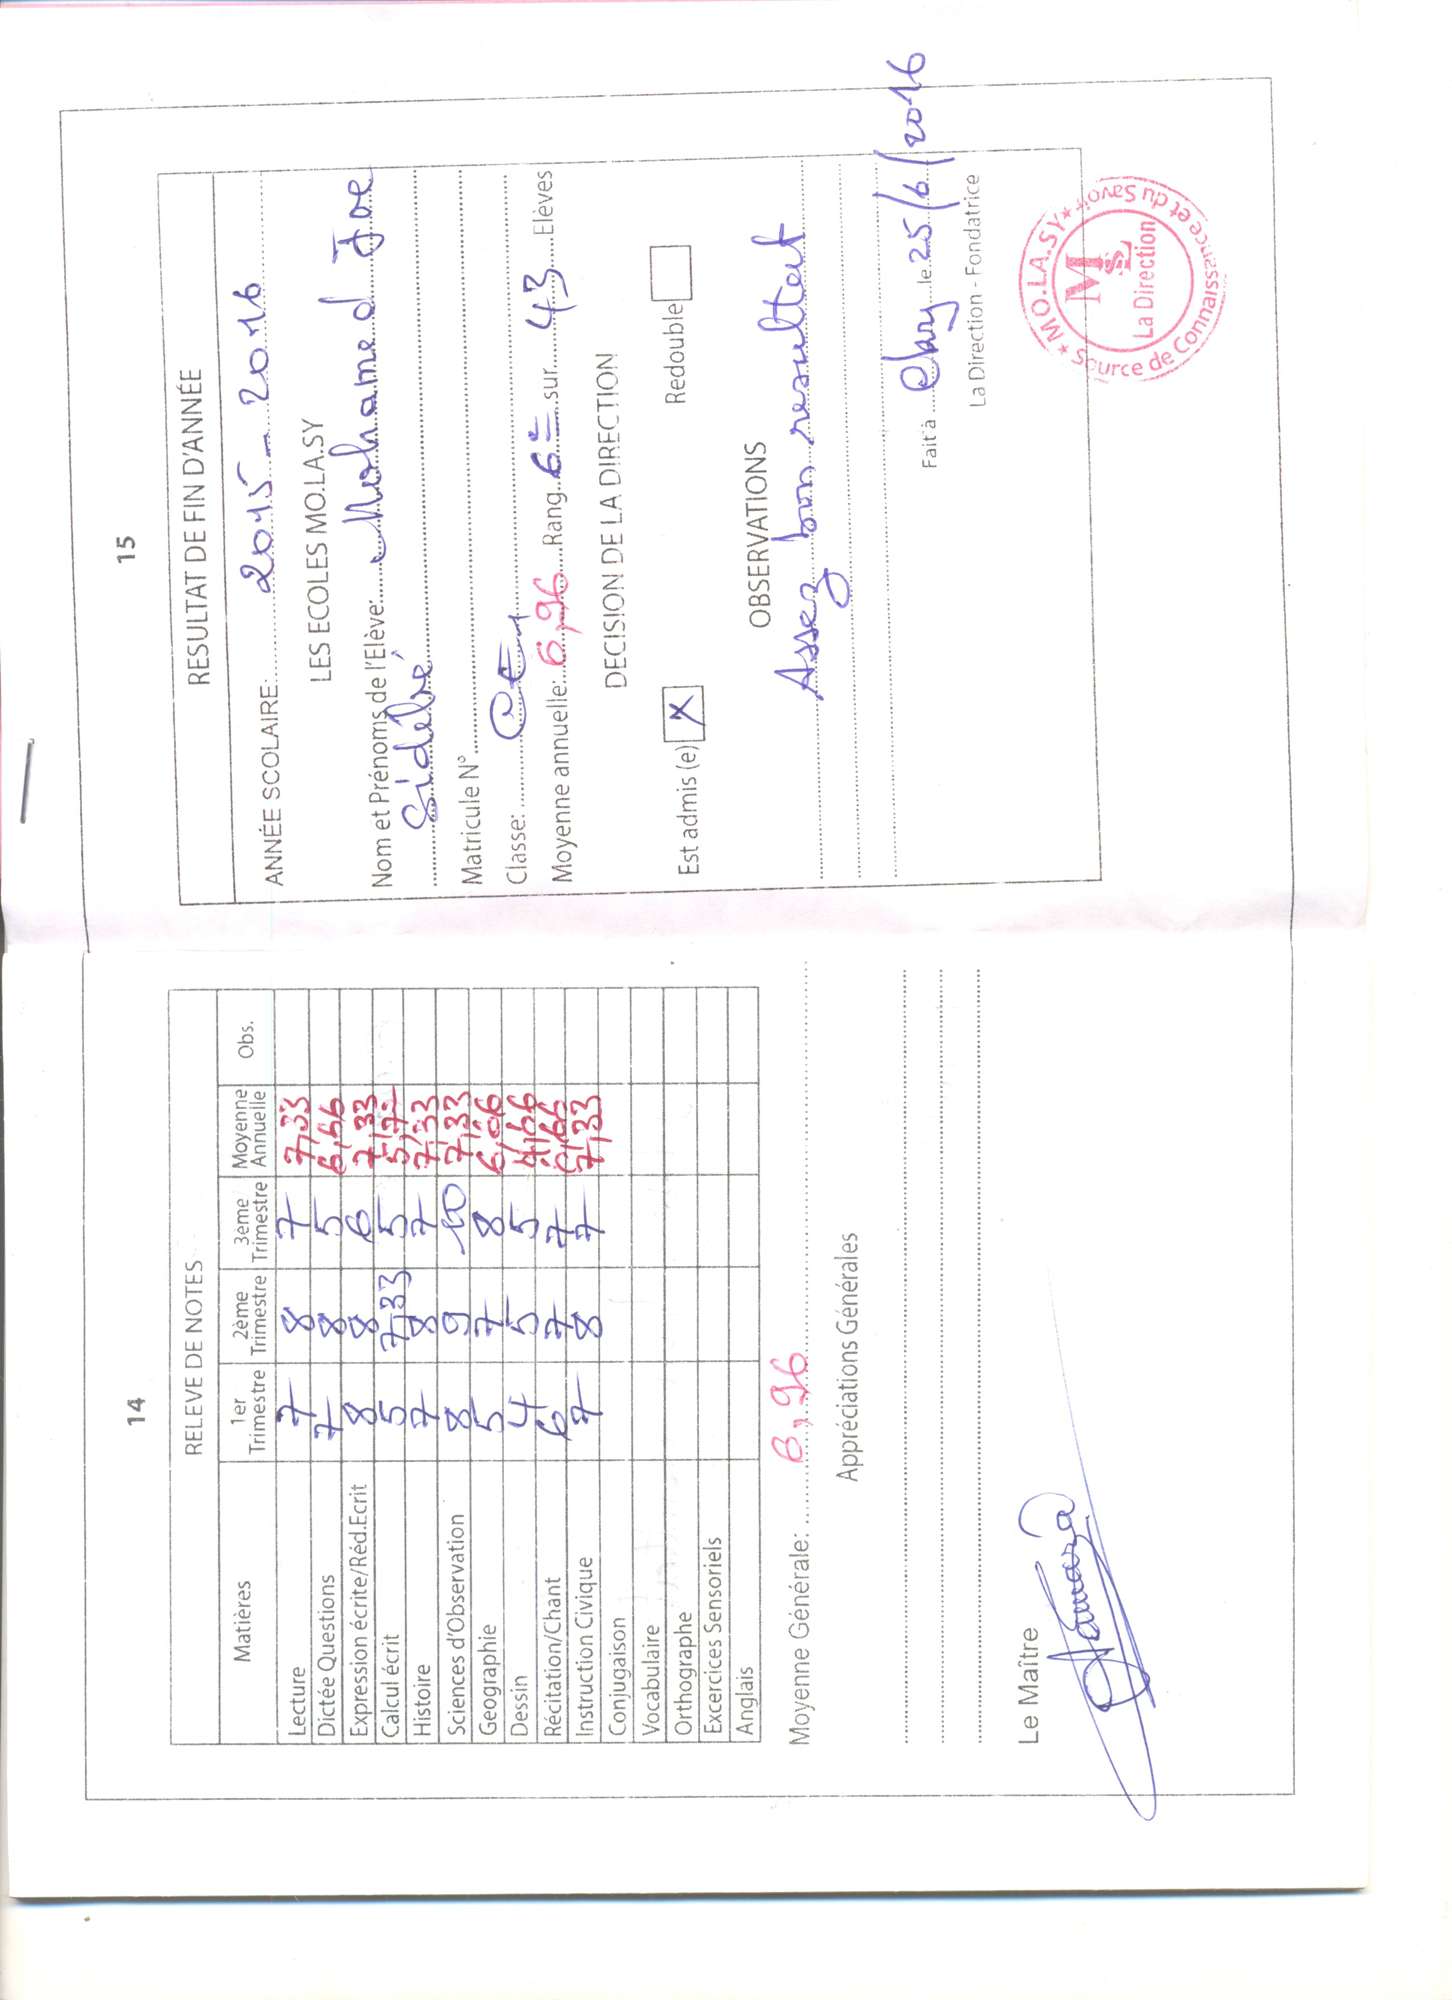 14
RELEVE DE NOTES
Matières 1er Trimestre 2ème Trimestre 3ème Trimestre Moyenne Annuelle Obs.
Lecture 7 8 7 7,33
Dictée Questions 7 8 5 6,66
Expression écrite/Réd.Ecrit 8 8 6 7,33
Calcul écrit 5 7,33 5
Histoire 7 8 7 7,33
Sciences d'Observation 8 9 10 7,33
Geographie 5 7 8 6,66
Dessin 4 5 5 4,66
Récitation/Chant 6 7 7 6,66
Instruction Civique 7 8 7 7,33
Conjugaison
Vocabulaire
Orthographe
Excercices Sensoriels
Anglais
Moyenne Générale: 6,96
Appréciations Générales
Le Maître
15
RESULTAT DE FIN D'ANNÉE
ANNÉE SCOLAIRE: 2015 - 2016
LES ECOLES MO.LA.SY
Nom et Prénoms de l'Elève: Mohamed Joe
Sidibé
Matricule N°
Classe:
Moyenne annuelle: 6,96 Rang 6e sur 43 Elèves
DECISION DE LA DIRECTION
Est admis (e) X Redouble
OBSERVATIONS
Assez bon resultat
Fait à Cky le 25/6/2016
La Direction - Fondatrice
MO.LA.SY
Source de Connaissance et du Savoir
MSL
La Direction